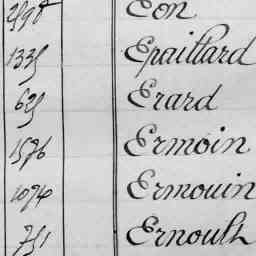 Eon
1335 Epaillard
635 Erard
1576 Ermoin
1074 Ermouin
751 Ernoult